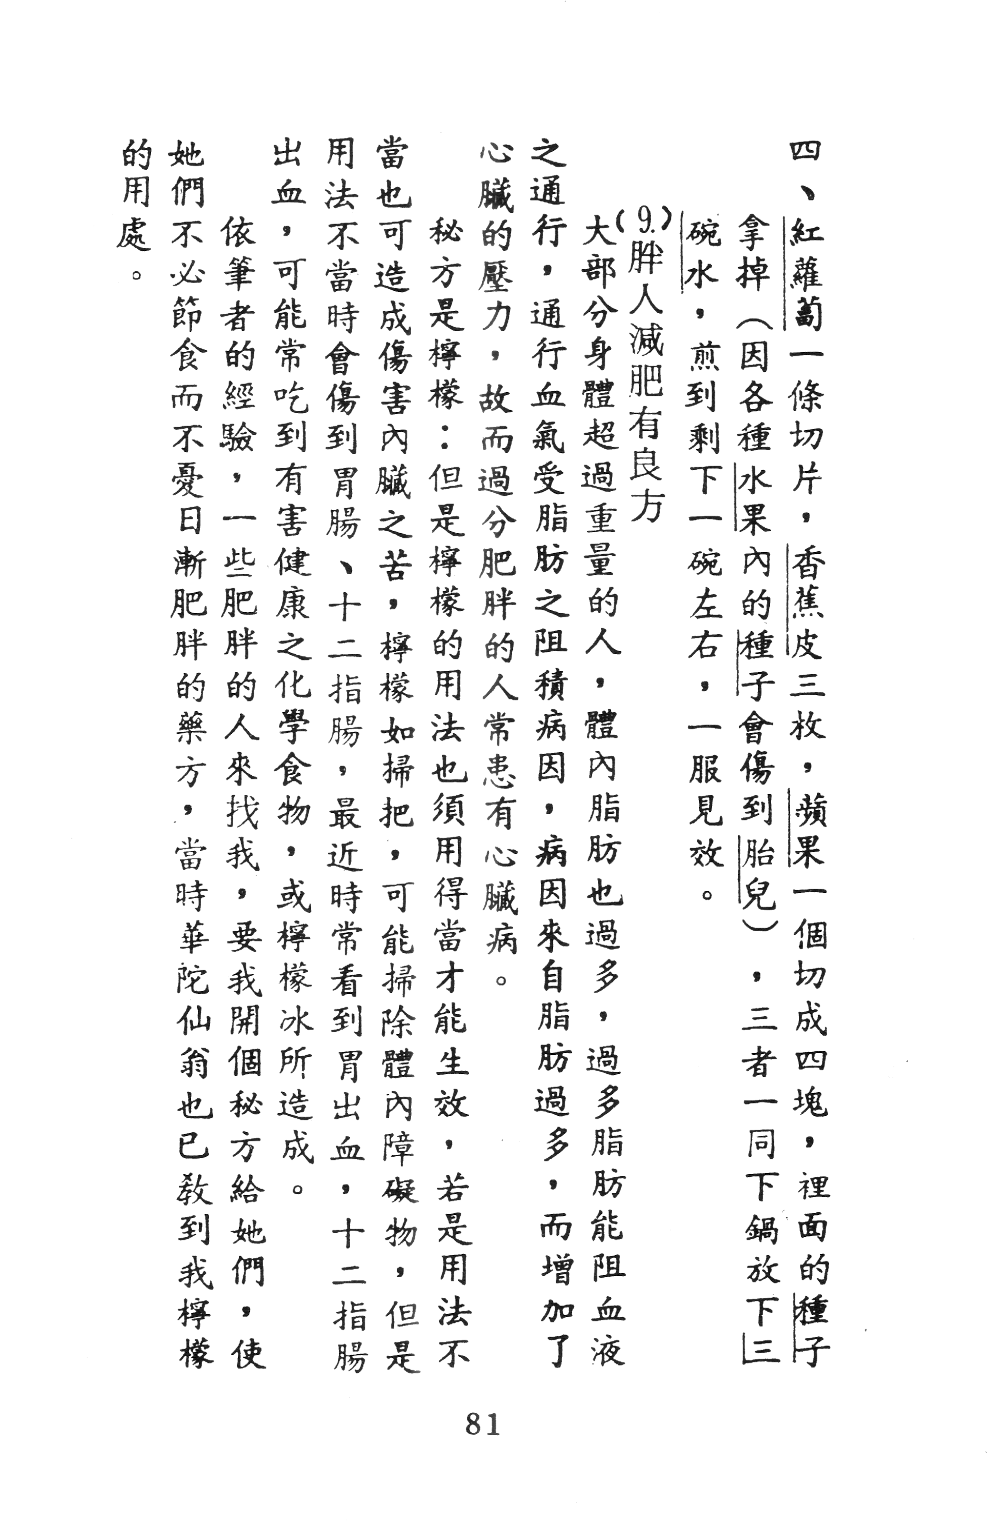 四、紅蘿蔔一條切片，香蕉皮三枚，蘋果一個切成四塊，裡面的種子
拿掉（因各種水果內的種子會傷到胎兒），三者一同下鍋放下三
碗水，煎到剩下一碗左右，一服見效。
(9.)胖人減肥有良方
大部分身體超過重量的人，體內脂肪也過多，過多脂肪能阻血液
之通行，通行血氣受脂肪之阻積病因，病因來自脂肪過多，而增加了
心臟的壓力，故而過分肥胖的人常患有心臟病。
秘方是檸檬：但是檸檬的用法也須用得當才能生效，若是用法不
當也可造成傷害內臟之苦，檸檬如掃把，可能掃除體內障礙物，但是
用法不當時會傷到胃腸、十二指腸，最近時常看到胃出血，十二指腸
出血，可能常吃到有害健康之化學食物，或檸檬冰所造成。
依筆者的經驗，一些肥胖的人來找我，要我開個秘方給她們，使
她們不必節食而不憂日漸肥胖的藥方，當時華陀仙翁也已教到我檸檬
的用處。
81